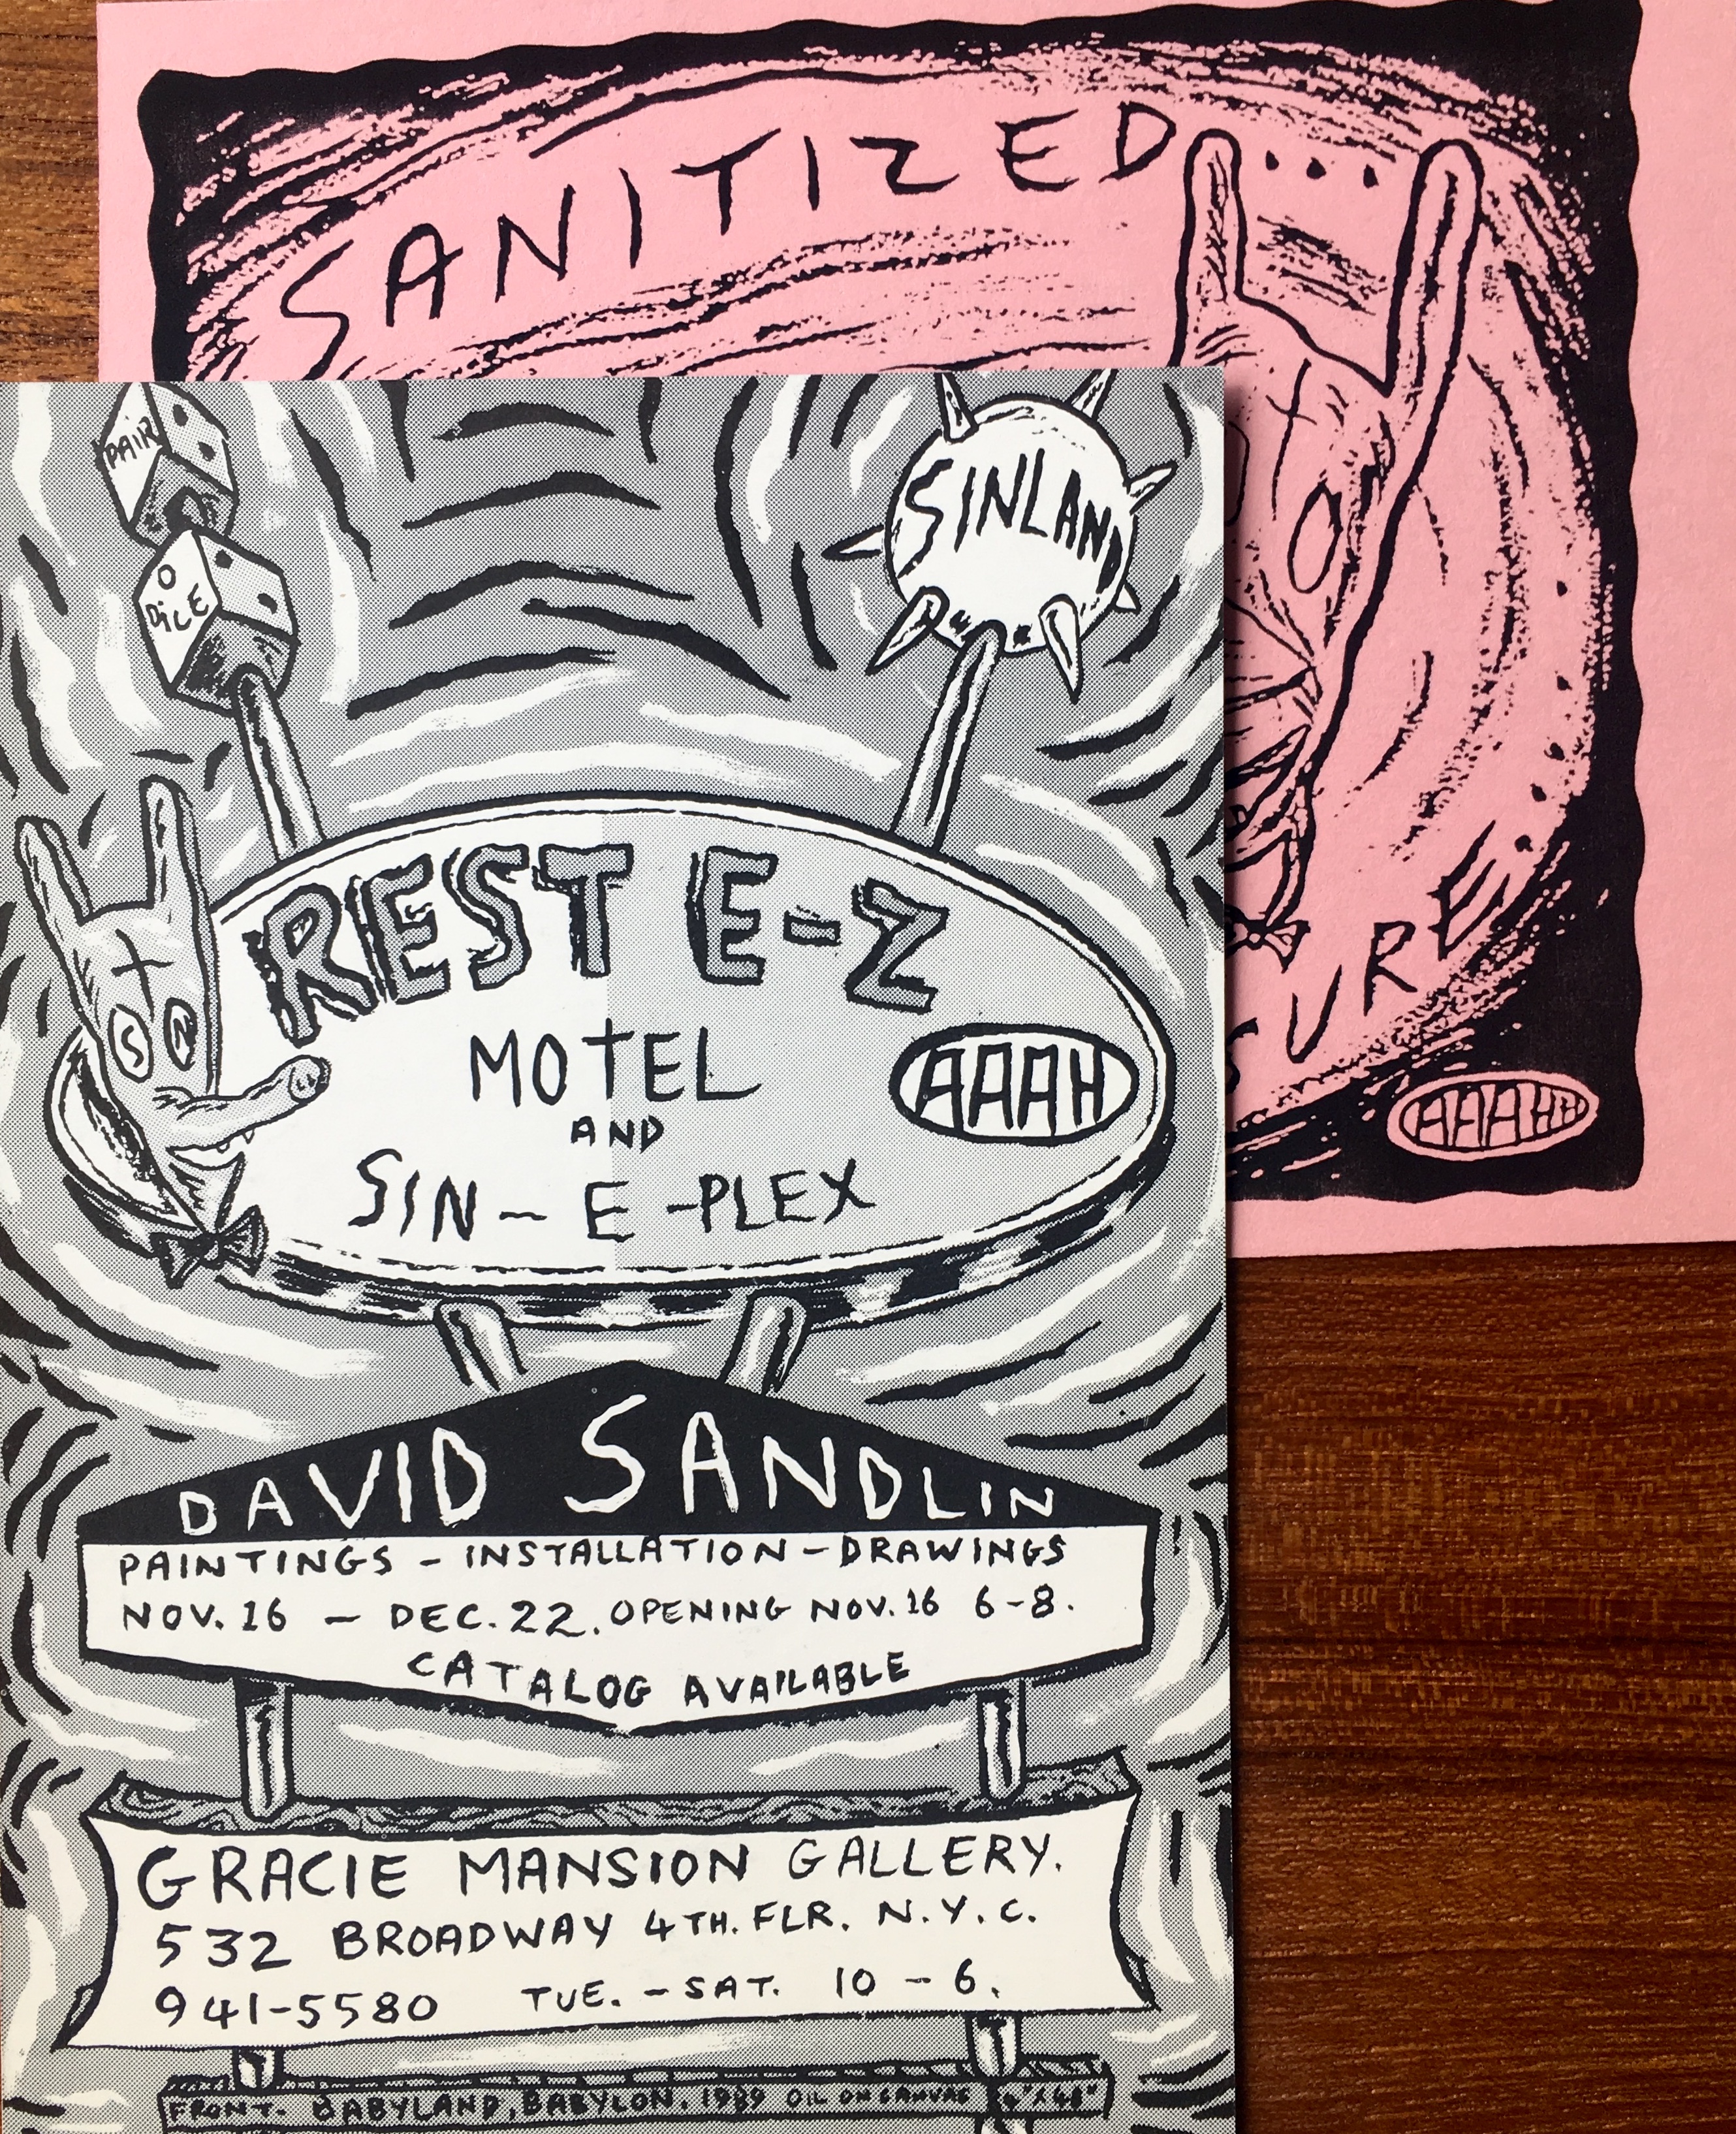 SANITIZED...
SURE
AAAHH
PAIR
O
DICE
SINLAND
S N
REST E-Z
MOTEL
AND
SIN-E-PLEX
AAAH
DAVID SANDLIN
PAINTINGS - INSTALLATION - DRAWINGS
NOV. 16 - DEC. 22. OPENING NOV. 16 6-8.
CATALOG AVAILABLE
GRACIE MANSION GALLERY.
532 BROADWAY 4TH. FLR. N.Y.C.
941-5580 TUE. - SAT. 10 - 6.
FRONT. BABYLAND, BABYLON. 1989 OIL ON CANVAS